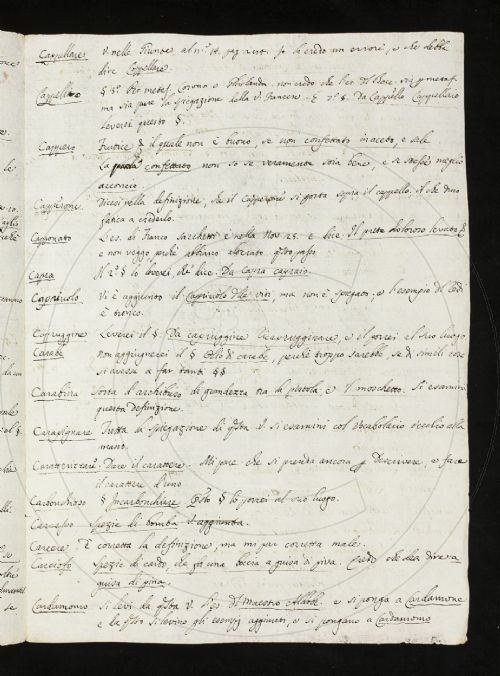 Cappellare V. nelle Giunte al n.º
dire Cappellare.
Cappello § 3.º Per metaf. Corona o Ghirlanda. non credo che
ma sia pure la spiegazione della v. Francese. E 7.º §. Da Cappello Cappellaro
leverei questo §.
Cappero Frutice § il quale non è buono, se non confettato in aceto, e sale
La confettato non so se veramente stia bene, e se stesse meglio
acconcio.
Capperone Dicesi nella definizione, che il Capperone si porta sopra il cappello. Il che duro
fatica a crederlo.
Capponato L'es. di Franco Sacchetti è nella Nov. 25. e dice. Il prete doloroso
e non veggo, perchè abbiano alterato qsto passo.
Capra Il 2.º § lo leverei, ch'è dice. Da Capra capraio.
Capriuolo Vi è aggiunto il Capriuolo delle viti, ma non è spiegato, e l'esempio di
è tronco.
Capruggine Leverei il §. Da capruggine Incapruggirare, e il porrei al suo luogo
Carabe Non aggiugnerei il § Olio di carabe, perchè troppo sarebbe, se di simili cose
si avesse a far tanti §§
Carabina Sorta d'archibuso di grandezza tra la pistola, e 'l moschetto. Si esamini
questa definizione.
Carapignare Tutta la spiegazione di qsta v. si esamini col Vocabolario vecchio alla
mano.
Caratterizzare Dare il carattere. Mi pare che si prenda ancora p Descrivere, e fare
il carattere d'uno
Carbonchioso § Incarbonchiare Qsto § lo porrei al suo luogo.
Carcasso Spezie di bomba V. aggiunta.
Carcere È corretta la definizione, ma mi par corretta male.
Carciofo Spezie di cardo, che fa una boccia a guisa di pina. Credo che dea dire a
guisa di pina.
Cardamomo Si levi da qsta v. l'es. di Maestro Aldob. e si ponga a Cardamone
e la qsto si levino gli esempj aggiunti, e si pongano a Cardamomo